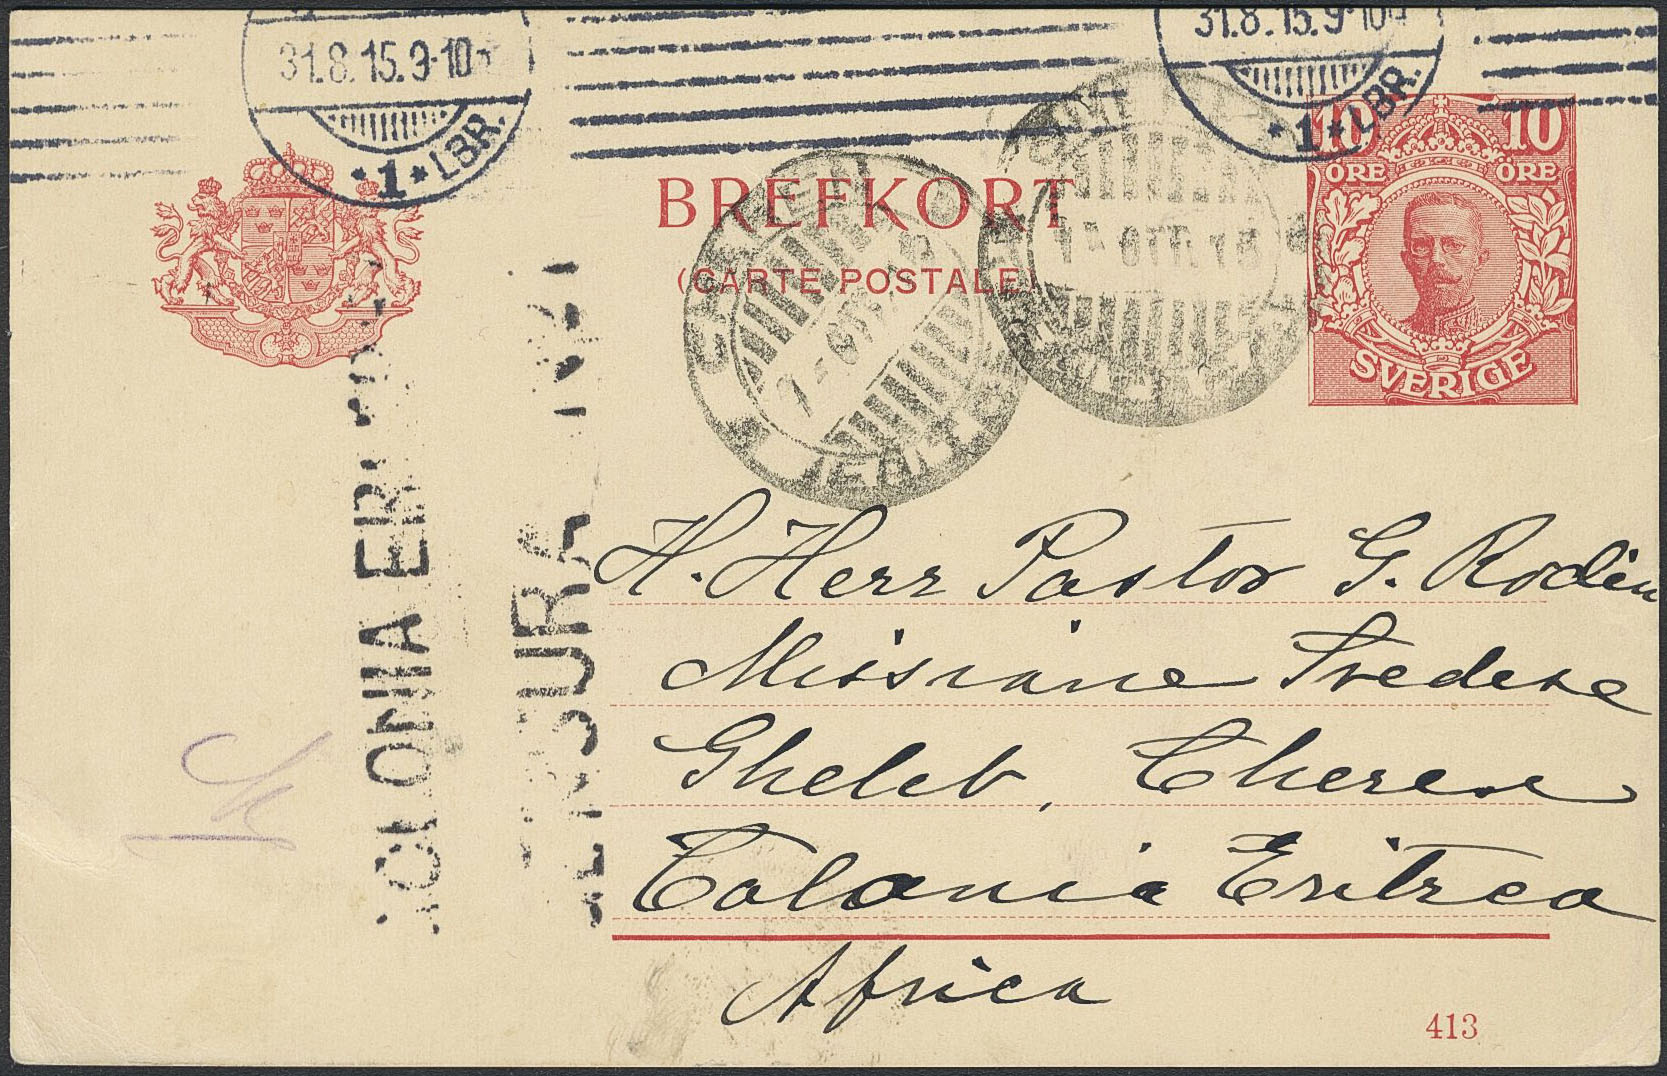 31.8.15.9-10
*1*LBR.
31.8.15.9-10
*1*LBR.
10 10
ÖRE ÖRE
SVERIGE
BREFKORT
(CARTE POSTALE)
COLONIA
H. Herr Pastor G. Rodén
Missione Svedese
Gheleb, Cheren
Colonia Eritrea
Africa
413